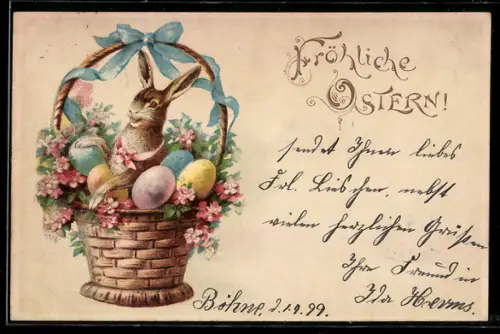 Fröhliche
OSTERN!
sendet Ihnen liebes
Frl. Lieschen, nebst
vielen herzlichen Grüßen
Ihre Freundin
Ida Herms.
Böhne, d. 1.4.99.